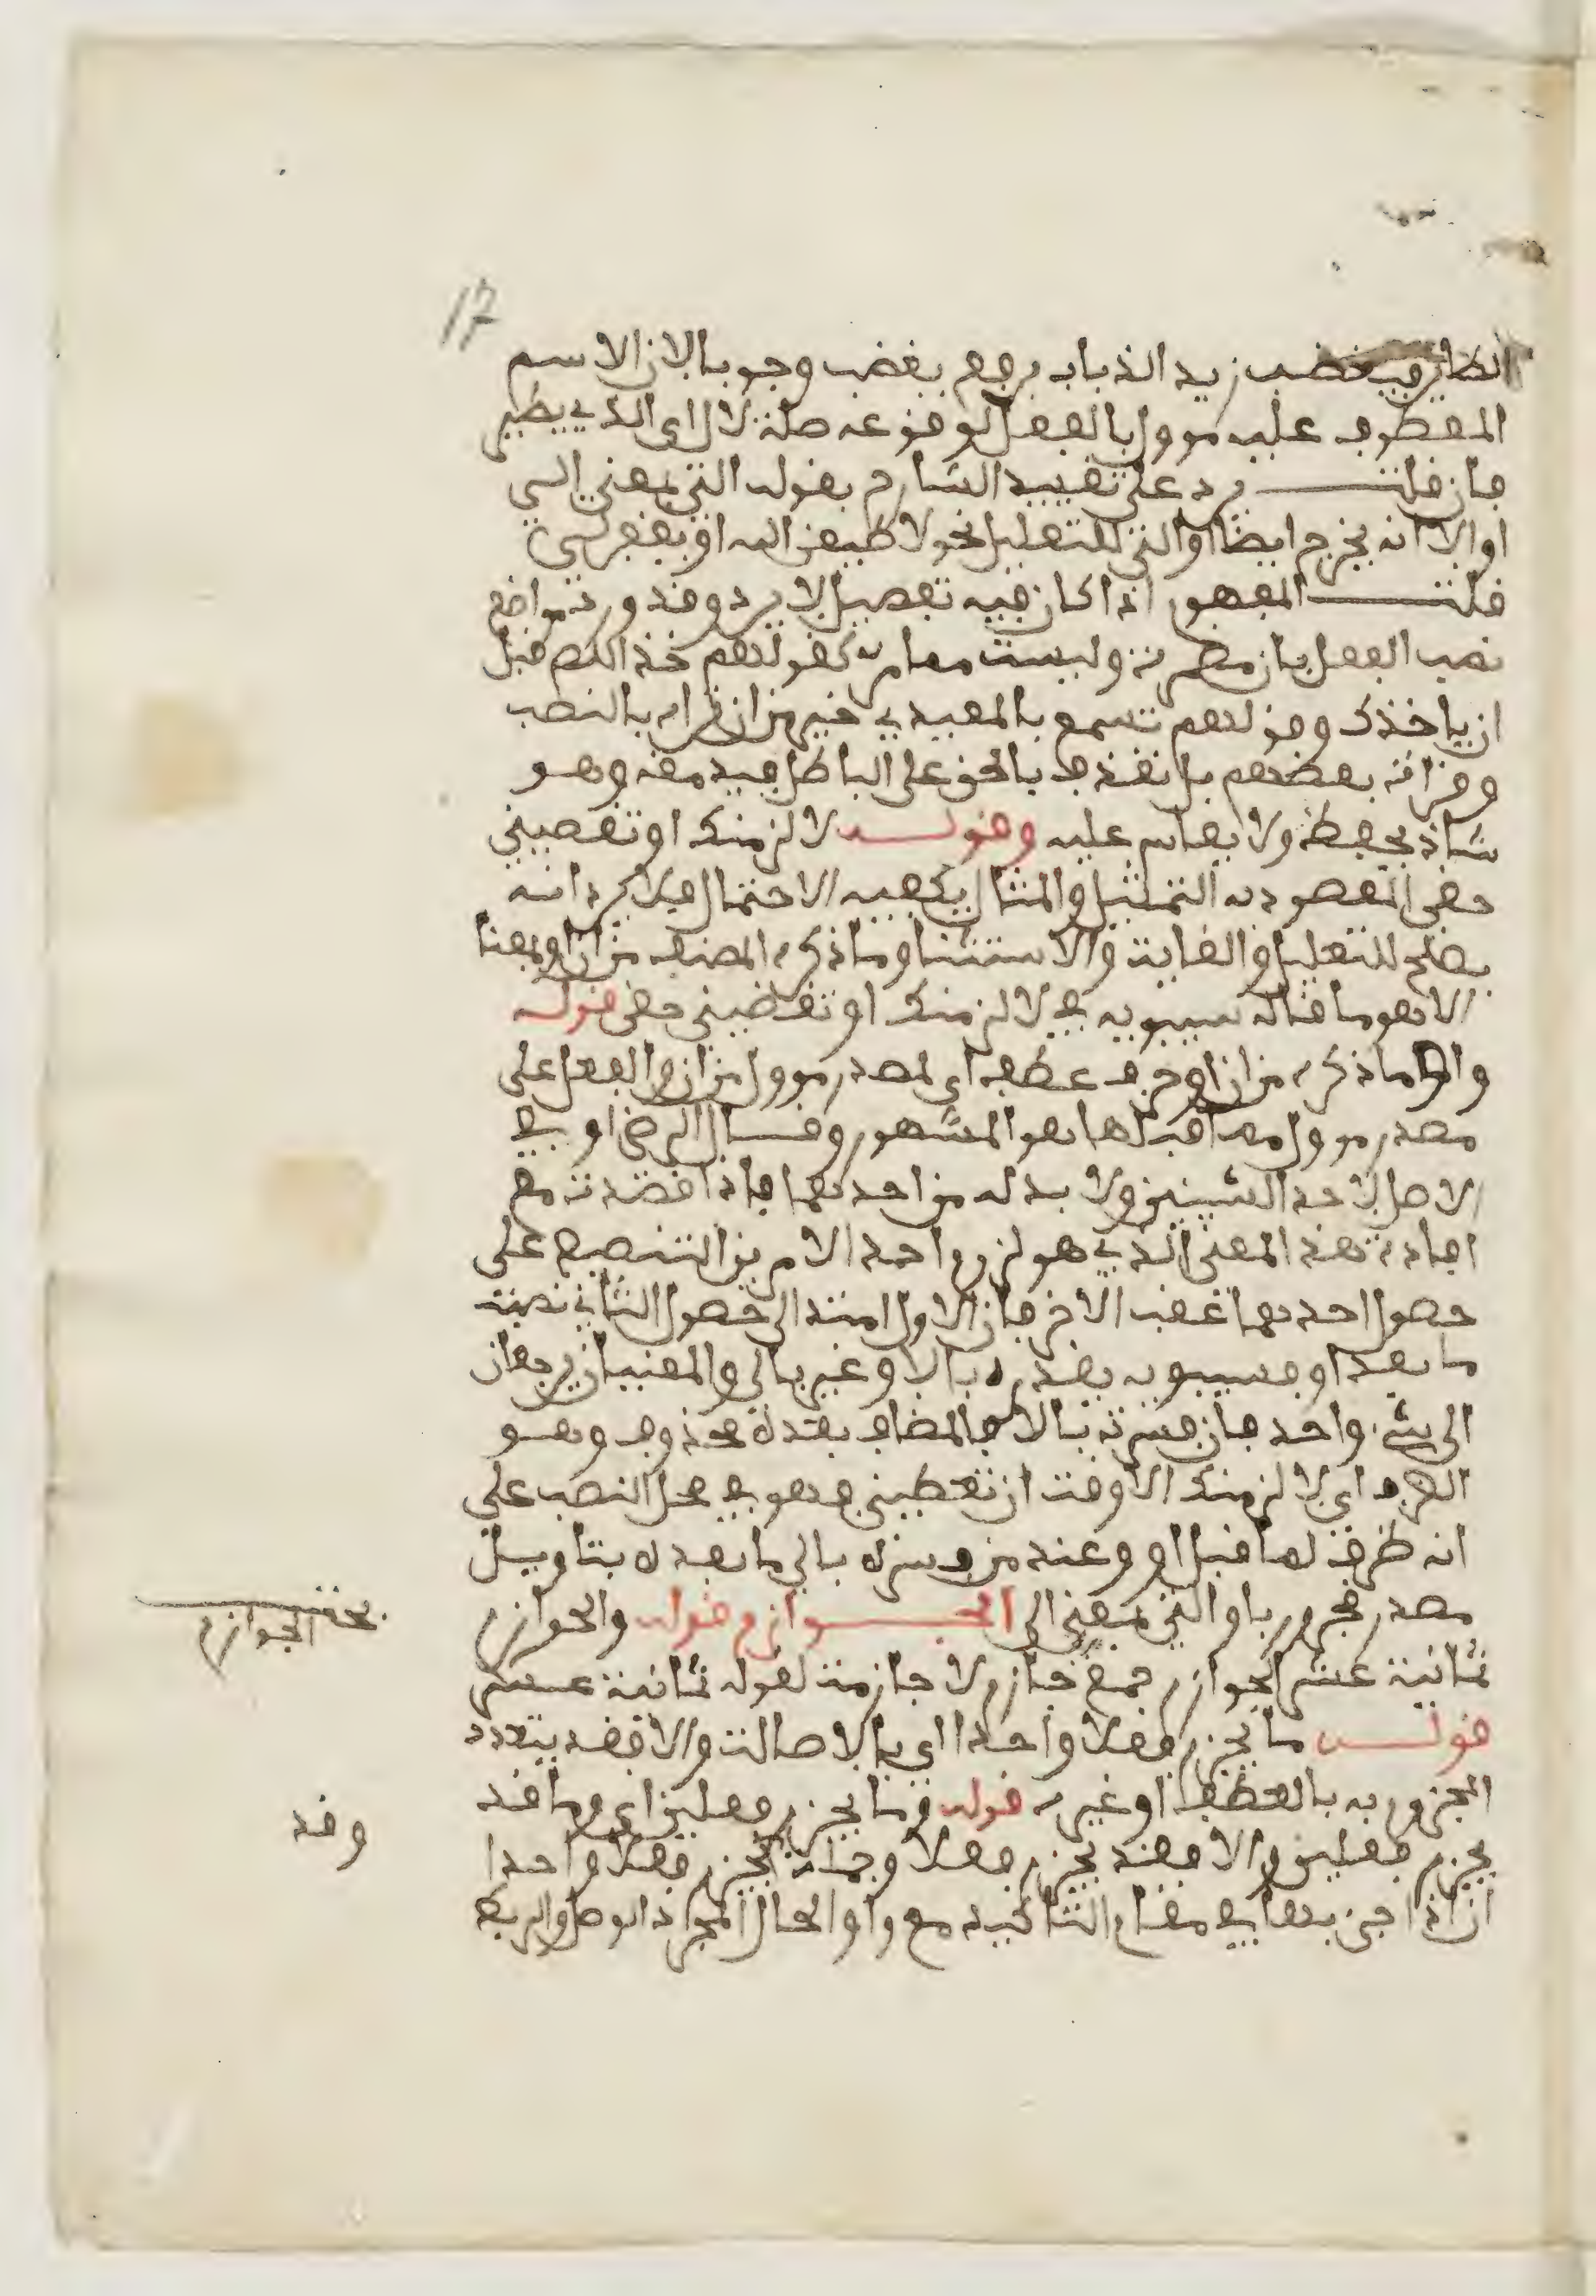 17
الطاير فيغضب زيد الذباب برفع يغضب وجوبا لان الاسم
المعطوف عليه مؤول بالفعل لوقوعه صلة لال اي الذي يطير
فان قلت يرد على تقييد الشارح بقوله التي بمعنى الى
او الا انه يخرج ايضا او التي للتعليل نحو لاطيعن الله او يغفر لي
قلت المفهوم اذا كان فيه تفصيل لا يرد وقد وردت مواضع
نصب الفعل بان مضمرة وليست مما مر كقولهم خذ اللص قبل
ان ياخذك وقولهم تسمع بالمعيدي خير من ان تراه بالنصب
وقراءة بعضهم بل نقذف بالحق على الباطل فيدمغه وهو
شاذ يحفظ ولا يقاس عليه وقوله لالزمنك او تقضيني
حقي المقصود به التمثيل والمثال يكفيه الاحتمال فلا يرد انه
يصلح للتعليل والغاية والاستثنا وما ذكره المصنف من ان او بمعنا
الا هو ما قاله سيبويه في لالزمنك او تقضيني حقي قوله
واو ما ذكره من ان او حرف عطف اي لمصدر مؤول من ان والفعل على
مصدر مؤول مما قبلها هو المشهور وقال الرضي او في
الاصل لاحد الشيئين ولا بد له من احدهما فاذا قصدت مع
افادة هذا المعنى الذي هو لزوم احد الامرين التنصيص على
حصول احدهما عقب الاخر فان الاول امتد الى حصول الثاني نصبت
ما بعد او فسيبويه يقدره بالا وغيره بالى والمعنيان يرجعان
الى شيء واحد فان فسرته بالا فالمضاف بعده محذوف وهو
الظرف اي لالزمنك الا وقت ان تعطيني فهو في محل النصب على
انه ظرف لما قبل او وعند من فسره بالى ما بعده بتاويل
مصدر مجرور باو التي بمعنى الى الجوازم قوله والجوازم
ثمانية عشر الجوازم جمع جازم لا جازمة لقوله ثمانية عشر
قوله ما يجزم فعلا واحدا اي بالاصالة والا فقد يتعدد
المجزوم به بالعطف او غيره قوله وما يجزم فعلين اي وما قد
يجزم فعلين والا فقد يجزم فعلا وجملة وقد يجزم فعلا واحدا
ان اذا جئ بها في مقام التاكيد مع واو الحال لمجرد الوصل والربط
بحث الجوازم
وقد